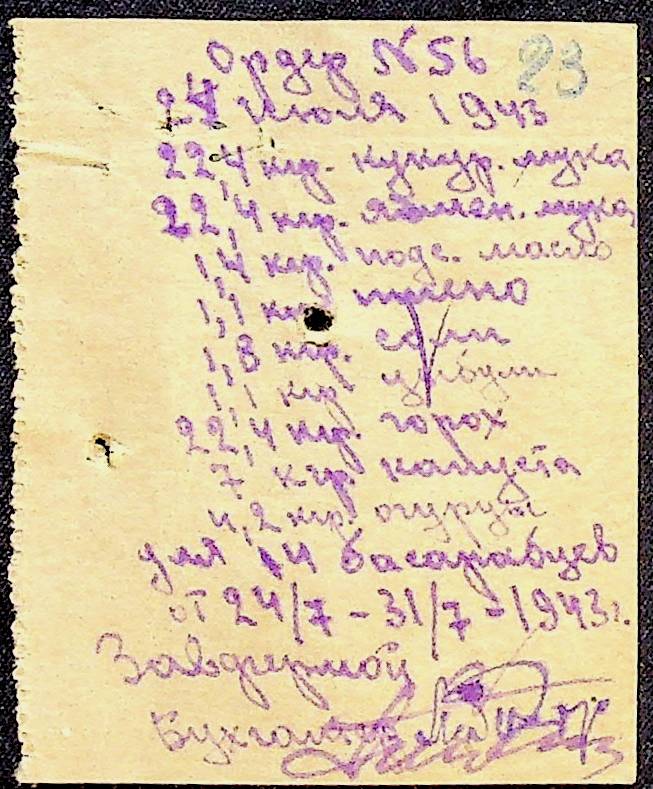 Ордер N 56 23
24 Июля 1943
22,4 кгр. кукур. мука
22,4 кгр. ячмен. мука
1,4 кгр. подс. масло
1,1 кгр пшено
1,8 кгр. соли
1,1 кгр цыбули
22,4 кгр. горох
7 кгр. капуста
4,2 кгр. огурци
для 14 басарабцев
от 24/7 - 31/7 - 1943 г.
Завфермой
Бухгалтер